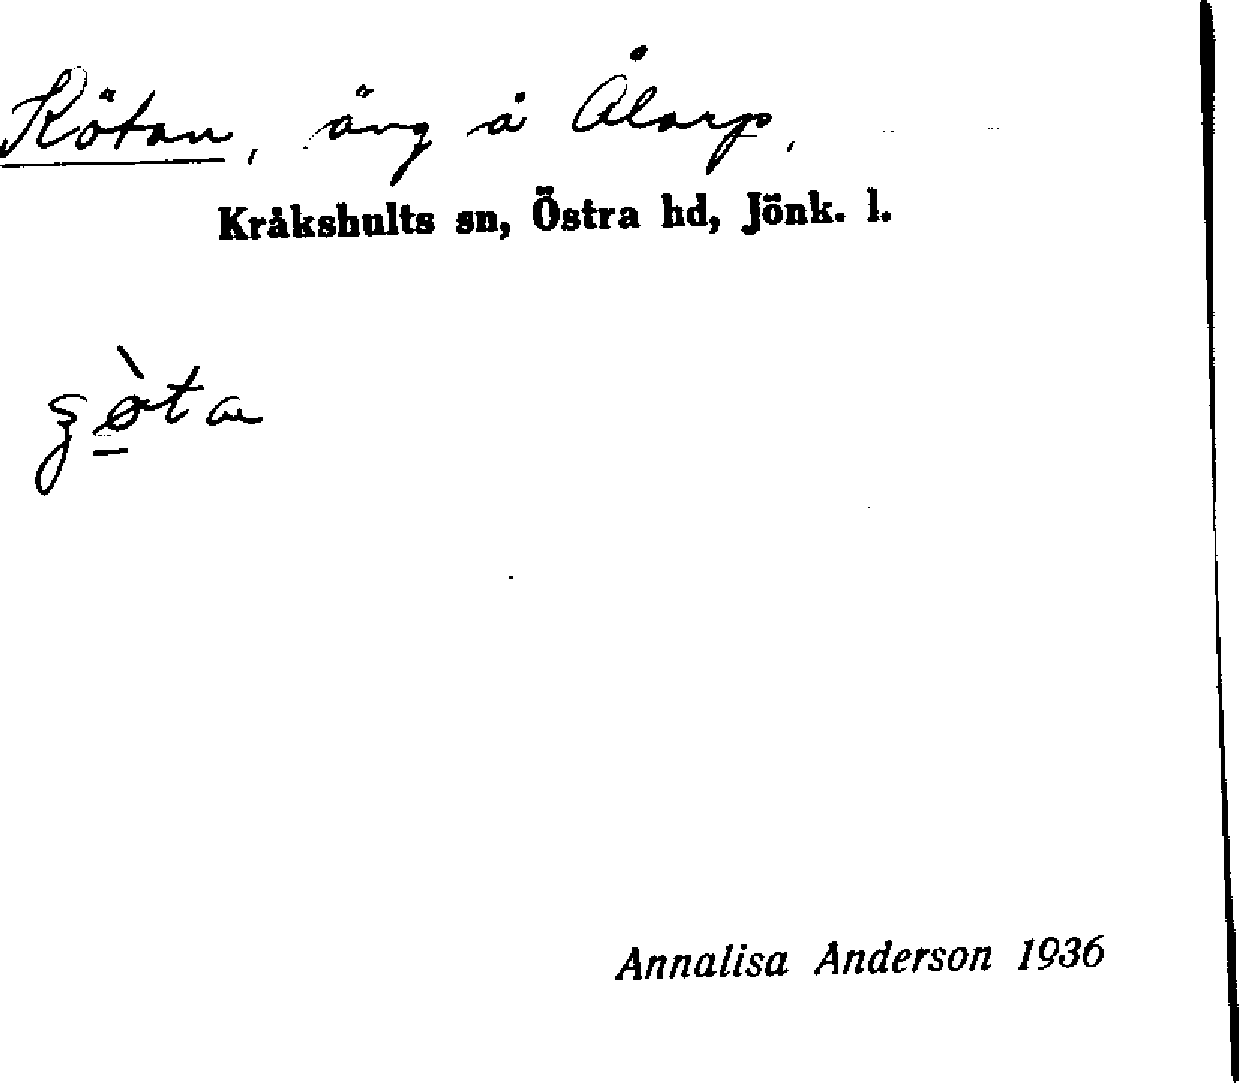 Rötan, äng å Ålarp,
Kråkshults sn, Östra hd, Jönk. l.
Annalisa Anderson 1936